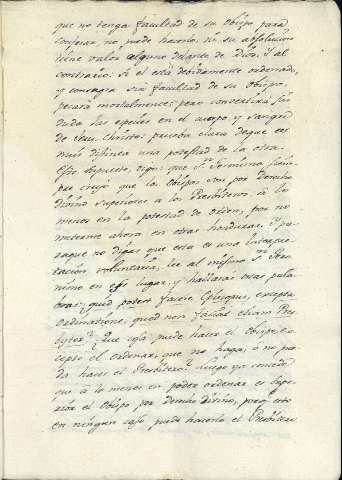 que no tenga facultad de su Obispo para
confesar, no puede hacerlo, ni su absolucion
tiene valor alguno delante de Dios. Y al
contrario: Si el está debidamente ordenado,
y consagra sin facultad de su Obispo,
pecará mortalmente: pero convertirá sin
duda las especies en el cuerpo y sangre
de Jesu-Christo: prueba clara de que es
mui distinta una potestad de la otra.
Esto supuesto, digo: que Sn. Geronimo siem-
pre creyó que los Obispos son por derecho
divino superiores a los Presbiteros, a lo
menos en la potestad de orden, por no
meterme ahora en otras honduras. Y pa-
raque no digas que esta es una interpre-
tacion voluntaria, lee al mismo Sn. Gero-
nimo en ese lugar, y hallarás esas pala-
bras: quid potest facere Episcopus, excepta
ordinatione, quod non faciat etiam Pres-
byter? Que cosa puede hacer el Obispo, ex-
cepto el ordenar, que no haga, ó no pue-
da hacer el Presbitero? Luego ya concede
que a lo menos en poder ordenar es supe-
rior el Obispo por derecho divino, pues esto
en ningun caso puede hacerlo el Presbitero